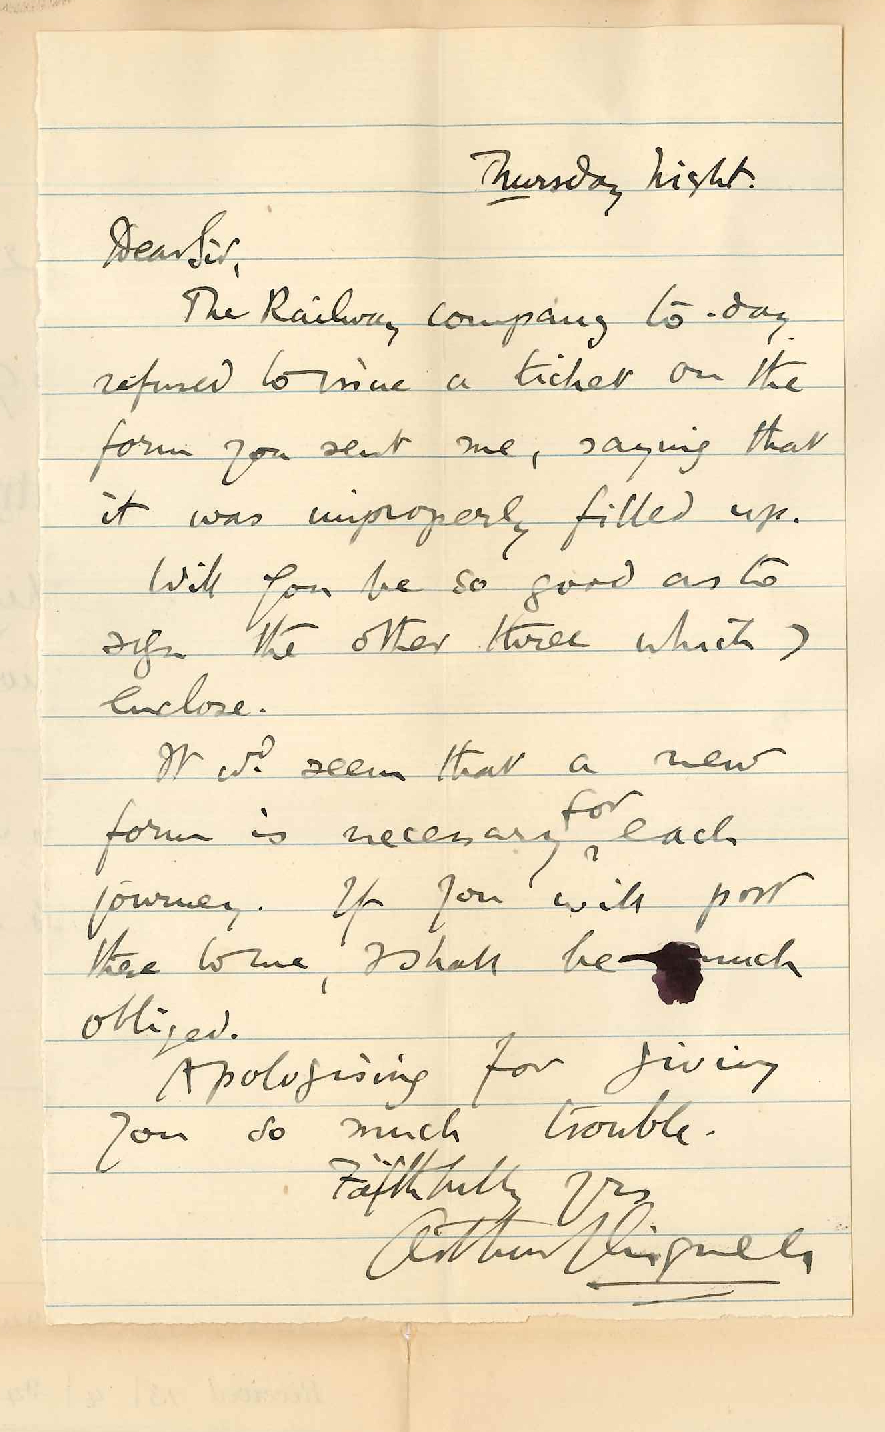 Thursday night.
Dear Sir,
The Railway company to-day
refused to issue a ticket on the
form you sent me, saying that
it was improperly filled up.
Will you be so good as to
sign the other three which I
enclose.
It wd. seem that a new
form is necessary for each
journey. If you will post
these to me, I shall be much
obliged.
Apologising for giving
you so much trouble.
Faithfully yrs
Arthur